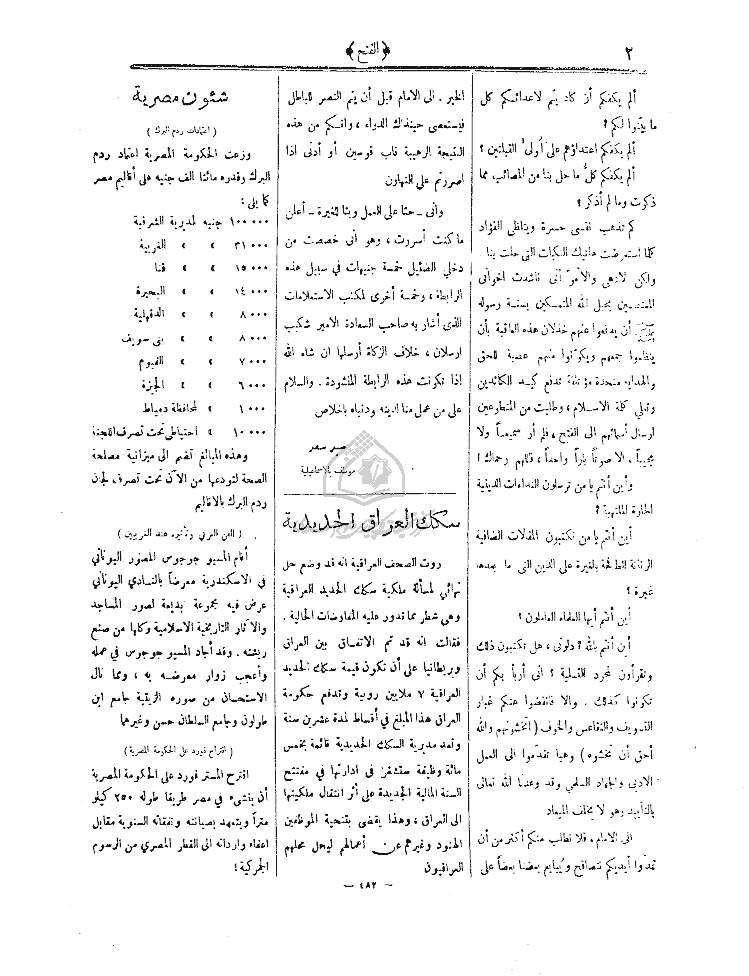 ٢
﴿ الفتح ﴾
ألم يكفكم أن كاد يتم لاعدائكم كل
ما بيتوا لكم ؟
ألم يكفكم اعتداؤهم على أولى القبلتين ؟
ألم يكفكم كل ما حل بنا من المصائب، مما
ذكرت وما لم أذكر ؟
كم تذهب نفسى حسرة ويتلظى الفؤاد
كلما استعرضت هاتيك النكبات التى حلت بنا .
ولكن الادهى والأمرّ أنى ناشدت اخوانى
المعتصمين بحبل الله المتمسكين بسنة رسوله
ﷺ أن يدفعوا عنهم خذلان هذه العاقبة بأن
ينظموا جمعهم ويكوّنوا منهم عصبة للحق
والهداية متحدة مؤتلفة تدفع كيد الكائدين
وتعلي كلمة الاسلام ، وطلبت من المتطوعين
ارسال أسمائهم الى الفتح ، فلم أر سميعاً ولا
مجيباً ، الا صوتاً باراً واحداً ، فاللهم رحماك !
وأين أنتم يا من ترسلون النداءات الدينية
الحارة الملتهبة ؟
أين أنتم يا من تكتبون المقالات الضافية
الرنانة الطافحة بالغيرة على الدين التى ما بعدها
غيرة ؟
أين أنتم أيها العلماء العاملون ؟
أين أنتم بالله ؟ دلونى ، هل تكتبون ذلك
وتقرأون لمجرد التسلية ؟ انى أربأ بكم أن
تكونوا كذلك . والا فانفضوا عنكم غبار
التسويف والتقاعس والخوف ( أتخشونهم والله
أحق أن تخشوه ) وهيا تقدّموا الى العمل
الادبى والجهاد السلمي وقد وعدنا الله تعالى
بالتأييد وهو لا يخلف الميعاد
الى الامام ، فلا نطلب منكم أكثر من أن
تمدّوا أيديكم نتصافح و يُبايع بعضنا بعضاً على
الخير . الى الامام قبل أن يتم النصر للباطل
فيستعصى حينئذ الدواء ، وانكم من هذه
النتيجة الرهيبة قاب قوسين أو أدنى اذا
اصررتم على التهاون
وانى ــ حثا على العمل وبثا للغيرة ــ أعلن
ما كنت أسررت ، وهو أنى خصصت من
دخلي الضئيل خمسة جنيهات في سبيل هذه
الرابطة ، وخمسة أخرى لمكتب الاستعلامات
الذى أشار به صاحب السعادة الامير شكيب
ارسلان ، خلاف الزكاة أرسلها ان شاء الله
اذا تكونت هذه الرابطة المنشودة . والسلام
على من عمل منا لدينه ودنياه باخلاص
موظف بالاسماعيلية
سكك العراق الحديدية
روت الصحف العراقية انه قد وضع حل
نهائي لمسألة ملكية سكك الحديد العراقية
وهى شطر مما تدور عليه المفاوضات الحالية .
فقالت انه قد تم الاتفاق بين العراق
وبريطانيا على أن تكون قيمة سكك الحديد
العراقية ٧ ملايين روبية وتدفع حكومة
العراق هذا المبلغ في أقساط لمدة عشرين سنة
وتعد مديرية السكك الحديدية قائمة بخمس
مائة وظيفة ستشغر فى ادارتها في مفتتح
السنة المالية الجديدة على أثر انتقال ملكيتها
الى العراق ، وهذا يقضى بتنحية الموظفين
الهنود وغيرهم عن أعمالهم ليحل محلهم
العراقيون
شئون مصرية
( اعتمادات ردم البرك )
وزعت الحكومة المصرية اعتماد ردم
البرك وقدره مائتا الف جنيه على أقاليم مصر
كما يلى :
١٠٠٠٠٠ جنيه لمديرية الشرقية
٣١٠٠٠ » » الغربية
١٥٠٠٠ » » قنا
١٤٠٠٠ » » البحيرة
٨٠٠٠ » » الدقهلية
٨٠٠٠ » » بنى سويف
٧٠٠٠ » » الفيوم
٦٠٠٠ » » الجيزة
١٠٠٠ » لمحافظة دمياط
١٠٠٠٠ » احتياطي تحت تصرف اللجنة
وهذه المبالغ تضم الى ميزانية مصلحة
الصحة لتودعها من الآن تحت تصرف لجان
ردم البرك بالاقاليم
( الفن العربي وتأثيره عند الغربيين )
أقام المسيو جورجوس المصور اليونانى
في الاسكندرية معرضاً بالنادي اليوناني
عرض فيه مجموعة بديعة لصور المساجد
والآثار التاريخية الاسلامية وكلها من صنع
ريشته . وقد أجاد المسيو جورجوس في عمله
وأعجب زوار معرضه به ، ومما نال
الاستحسان من صوره الزيتية جامع ابن
طولون وجامع السلطان حسن وغيرهما
( اقتراح فورد على الحكومة المصرية )
اقترح المستر فورد على الحكومة المصرية
أن ينشىء في مصر طريقا طوله ٢٥٠ كيلو
متراً ويتعهد بصيانته ونفقاته السنوية مقابل
اعفاء وارداته الى القطر المصري من الرسوم
الجمركية !
— ٤٨٢ —